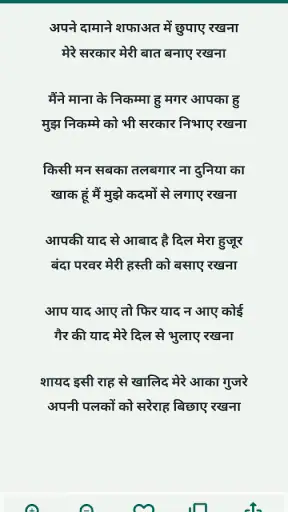 अपने दामाने शफाअत में छुपाए रखना
मेरे सरकार मेरी बात बनाए रखना
मैंने माना के निकम्मा हु मगर आपका हु
मुझ निकम्मे को भी सरकार निभाए रखना
किसी मन सबका तलबगार ना दुनिया का
खाक हूं मैं मुझे कदमों से लगाए रखना
आपकी याद से आबाद है दिल मेरा हुजूर
बंदा परवर मेरी हस्ती को बसाए रखना
आप याद आए तो फिर याद न आए कोई
गैर की याद मेरे दिल से भुलाए रखना
शायद इसी राह से खालिद मेरे आका गुजरे
अपनी पलकों को सरेराह बिछाए रखना